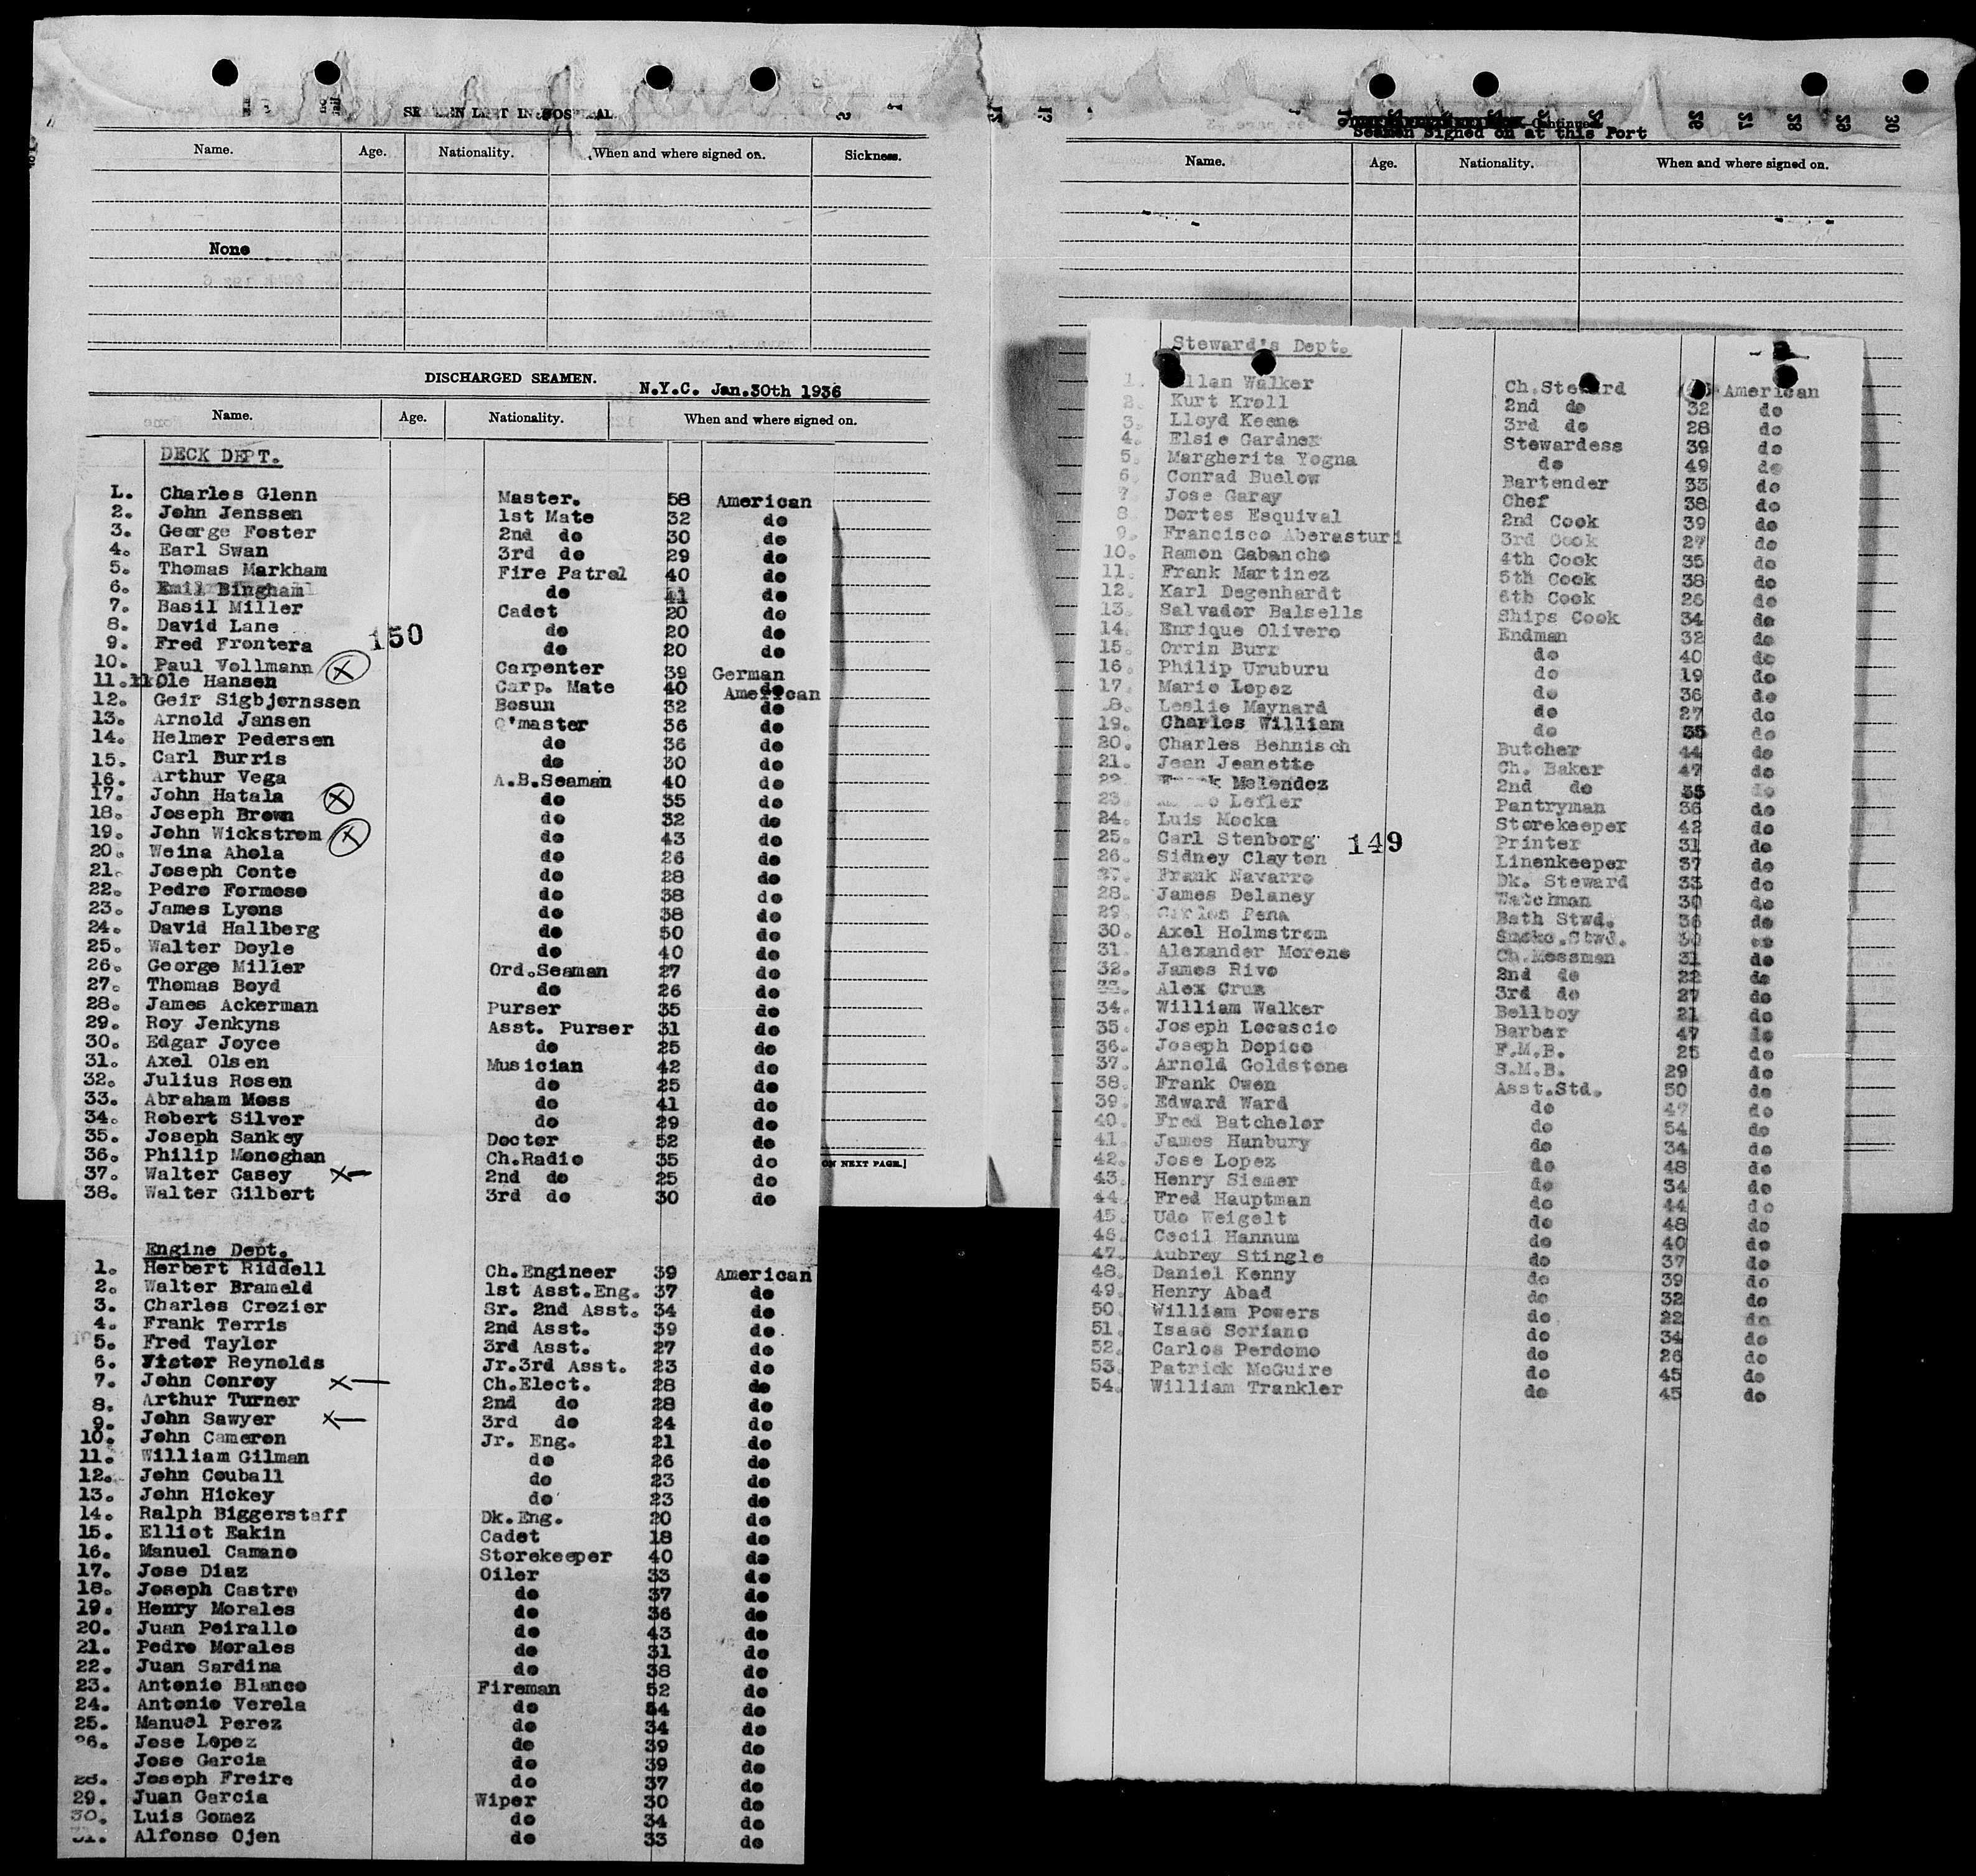 SEAMEN LEFT IN HOSPITAL
Name. Age. Nationality. When and where signed on. Sickness.
None
DISCHARGED SEAMEN. N.Y.C. Jan.30th 1936
Name. Age. Nationality. When and where signed on.
DECK DEPT.
L. Charles Glenn Master. 58 American
2. John Jenssen 1st Mate 32 do
3. George Foster 2nd do 30 do
4. Earl Swan 3rd do 29 do
5. Thomas Markham Fire Patrol 40 do
6. Emil Bingham do 41 do
7. Basil Miller Cadet 20 do
8. David Lane do 20 do
9. Fred Frontera 150 do 20 do
10. Paul Vollmann X Carpenter 39 German
11. Ole Hansen Carp. Mate 40 American
12. Geir Sigbjornssen Bosun 32 do
13. Arnold Jansen Q'master 36 do
14. Helmer Pedersen do 36 do
15. Carl Burris do 30 do
16. Arthur Vega A.B.Seaman 40 do
17. John Hatala X do 35 do
18. Joseph Brown do 32 do
19. John Wickstrom X do 43 do
20. Weina Ahola do 26 do
21. Joseph Conte do 28 do
22. Pedro Formoso do 38 do
23. James Lyons do 38 do
24. David Hallberg do 50 do
25. Walter Doyle do 40 do
26. George Miller Ord.Seaman 27 do
27. Thomas Boyd do 26 do
28. James Ackerman Purser 35 do
29. Roy Jenkyns Asst. Purser 31 do
30. Edgar Joyce do 25 do
31. Axel Olsen Musician 42 do
32. Julius Rosen do 25 do
33. Abraham Moss do 41 do
34. Robert Silver do 29 do
35. Joseph Sankey Doctor 52 do
36. Philip Moneghan Ch.Radio 35 do
37. Walter Casey X 2nd do 25 do
38. Walter Gilbert 3rd do 30 do
ON NEXT PAGE.]
Engine Dept.
1. Herbert Riddell Ch.Engineer 39 American
2. Walter Brameld 1st Asst.Eng. 37 do
3. Charles Crozier Sr. 2nd Asst. 34 do
4. Frank Terris 2nd Asst. 39 do
5. Fred Taylor 3rd Asst. 27 do
6. Victor Reynolds Jr.3rd Asst. 23 do
7. John Conroy X Ch.Elect. 28 do
8. Arthur Turner 2nd do 28 do
9. John Sawyer X 3rd do 24 do
10. John Cameron Jr. Eng. 21 do
11. William Gilman do 26 do
12. John Couball do 23 do
13. John Hickey do 23 do
14. Ralph Biggerstaff Dk.Eng. 20 do
15. Elliot Eakin Cadet 18 do
16. Manuel Camano Storekeeper 40 do
17. Jose Diaz Oiler 33 do
18. Joseph Castro do 37 do
19. Henry Morales do 36 do
20. Juan Peirallo do 43 do
21. Pedro Morales do 31 do
22. Juan Sardina do 38 do
23. Antonio Blanco Fireman 52 do
24. Antonio Verela do 54 do
25. Manuel Perez do 34 do
26. Jose Lopez do 39 do
Jose Garcia do 39 do
28. Joseph Freire do 37 do
29. Juan Garcia Wiper 30 do
30. Luis Gomez do 34 do
31. Alfonso Ojen do 33 do
Continued
Seamen Signed on at this Port
Name. Age. Nationality. When and where signed on.
Steward's Dept.
1. Allan Walker Ch.Steward American
2. Kurt Kroll 2nd do 32 do
3. Lloyd Keene 3rd do 28 do
4. Elsie Gardner Stewardess 39 do
5. Margherita Yogna do 49 do
6. Conrad Buelow Bartender 33 do
7. Jose Garay Chef 38 do
8. Dortes Esquival 2nd Cook 39 do
9. Francisco Aberasturi 3rd Cook 27 do
10. Ramon Gabancho 4th Cook 35 do
11. Frank Martinez 5th Cook 38 do
12. Karl Degenhardt 6th Cook 26 do
13. Salvador Balsells Ships Cook 34 do
14. Enrique Olivero Endman 32 do
15. Orrin Burr do 40 do
16. Philip Uruburu do 19 do
17. Mario Lopez do 36 do
18. Leslie Maynard do 27 do
19. Charles William do 35 do
20. Charles Behnisch Butcher 44 do
21. Jean Jeanette Ch. Baker 47 do
22. Frank Melendez 2nd do 35 do
23. Lefler Pantryman 36 do
24. Luis Mocka Storekeeper 42 do
25. Carl Stenborg 149 Printer 31 do
26. Sidney Clayton Linenkeeper 37 do
27. Frank Navarro Dk. Steward 33 do
28. James Delaney Watchman 30 do
29. Carlos Pena Bath Stwd. 36 do
30. Axel Holmstrom Smoke.Stwd. 30 do
31. Alexander Moreno Ch.Messman 31 do
32. James Rivo 2nd do 22 do
33. Alex Cruz 3rd do 27 do
34. William Walker Bellboy 21 do
35. Joseph Locascio Barbar 47 do
36. Joseph Dopico F.M.B. 25 do
37. Arnold Goldstone S.M.B. 29 do
38. Frank Owen Asst.Std. 50 do
39. Edward Ward do 47 do
40. Fred Batchelor do 54 do
41. James Hanbury do 34 do
42. Jose Lopez do 48 do
43. Henry Siemer do 34 do
44. Fred Hauptman do 44 do
45. Udo Weigelt do 48 do
46. Cecil Hannum do 40 do
47. Aubrey Stingle do 37 do
48. Daniel Kenny do 39 do
49. Henry Abad do 32 do
50. William Powers do 22 do
51. Isaac Soriano do 34 do
52. Carlos Perdomo do 26 do
53. Patrick McGuire do 45 do
54. William Trankler do 45 do